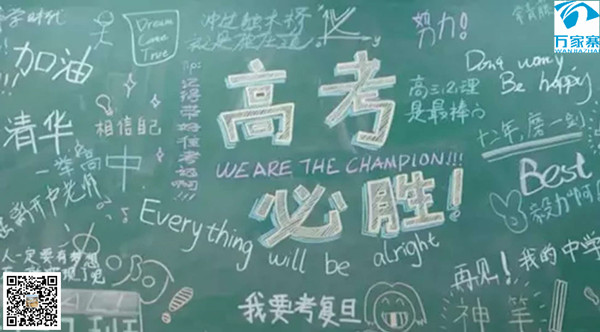 万家寨
WANJIAZHAI
学时代
Dream
Come
True
冲过独木桥
努力!
加油
Don't worry
Be happy
高考
高三(2)理
是最棒的
清华
相信自己
十二年磨一剑
一举高中
WE ARE THE CHAMPION!!!
Best
必胜!
Everything will be alright
人一定要有梦想
再见!我的中学
我要考复旦
神笔